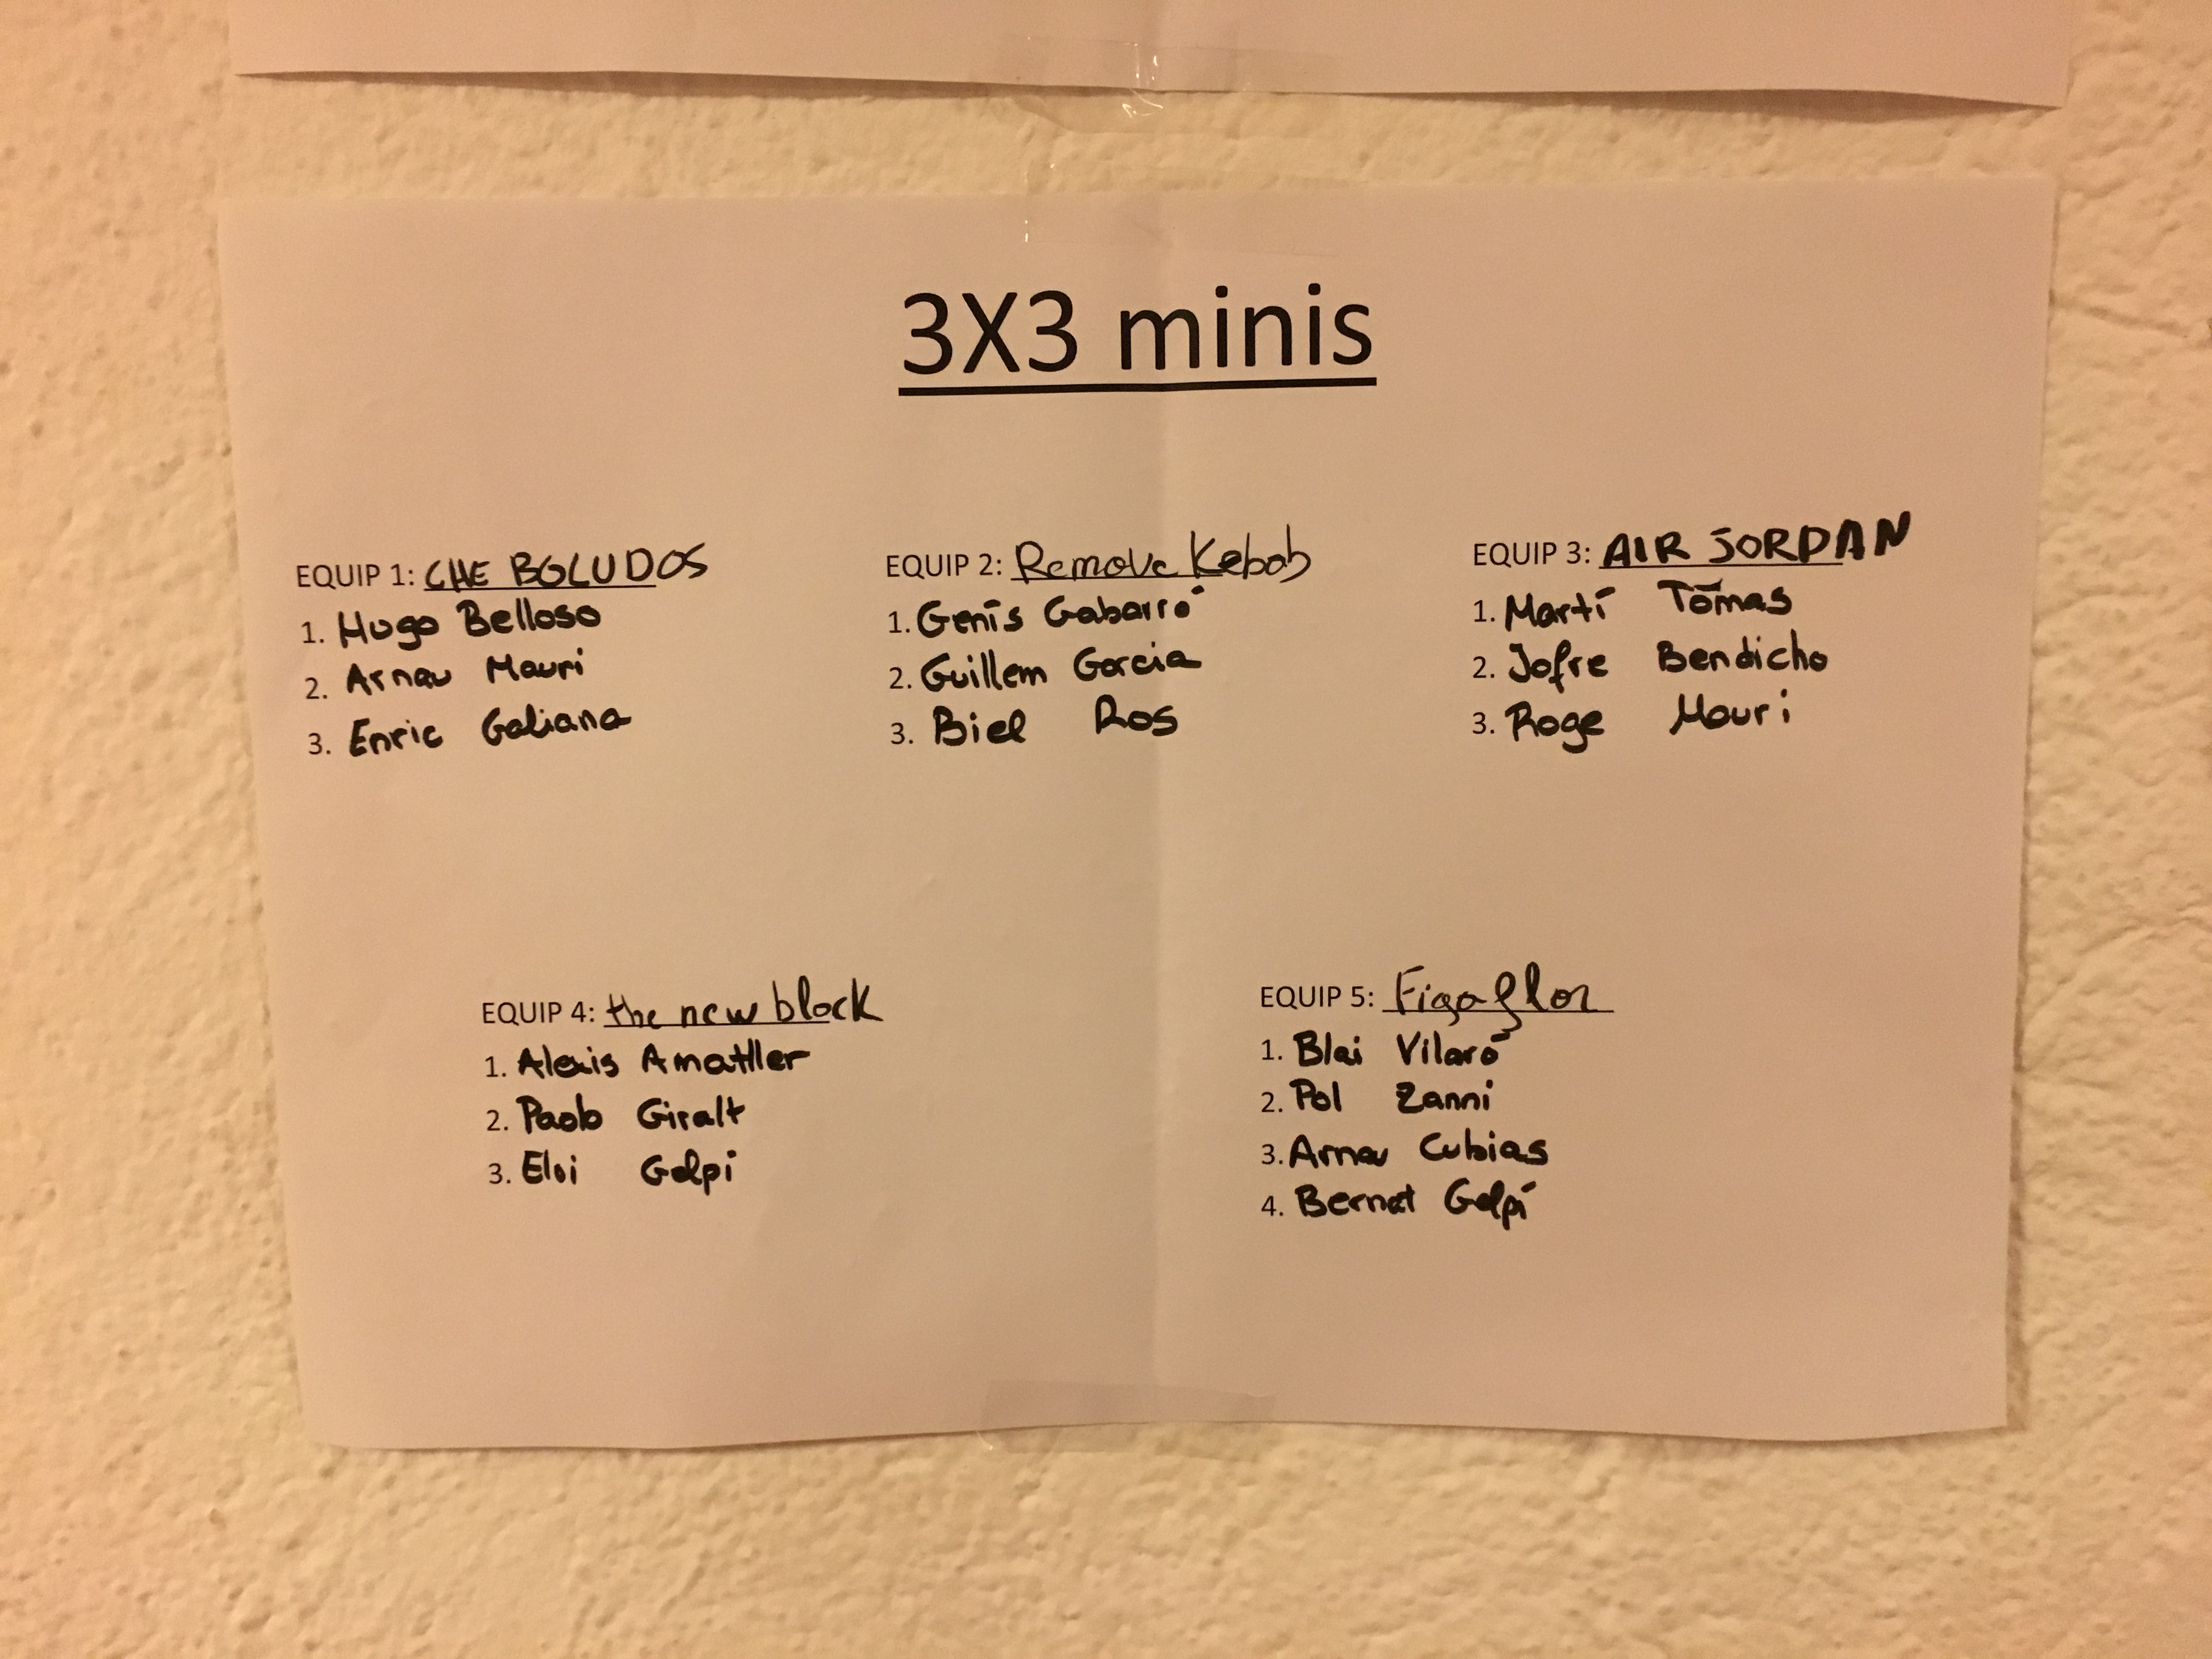 3X3 minis
EQUIP 1: CHE BOLUDOS
1. Hugo Belloso
2. Arnau Mauri
3. Enric Galiana
EQUIP 2: Remove Kebab
1. Genís Gabarró
2. Guillem Garcia
3. Biel Ros
EQUIP 3: AIR JORDAN
1. Martí Tomas
2. Jofre Bendicho
3. Roge Mauri
EQUIP 4: the new block
1. Alexis Amatller
2. Paolo Giralt
3. Eloi Gelpi
EQUIP 5: Figaflor
1. Blai Vilaró
2. Pol Zanni
3. Arnau Cubias
4. Bernat Gelpí